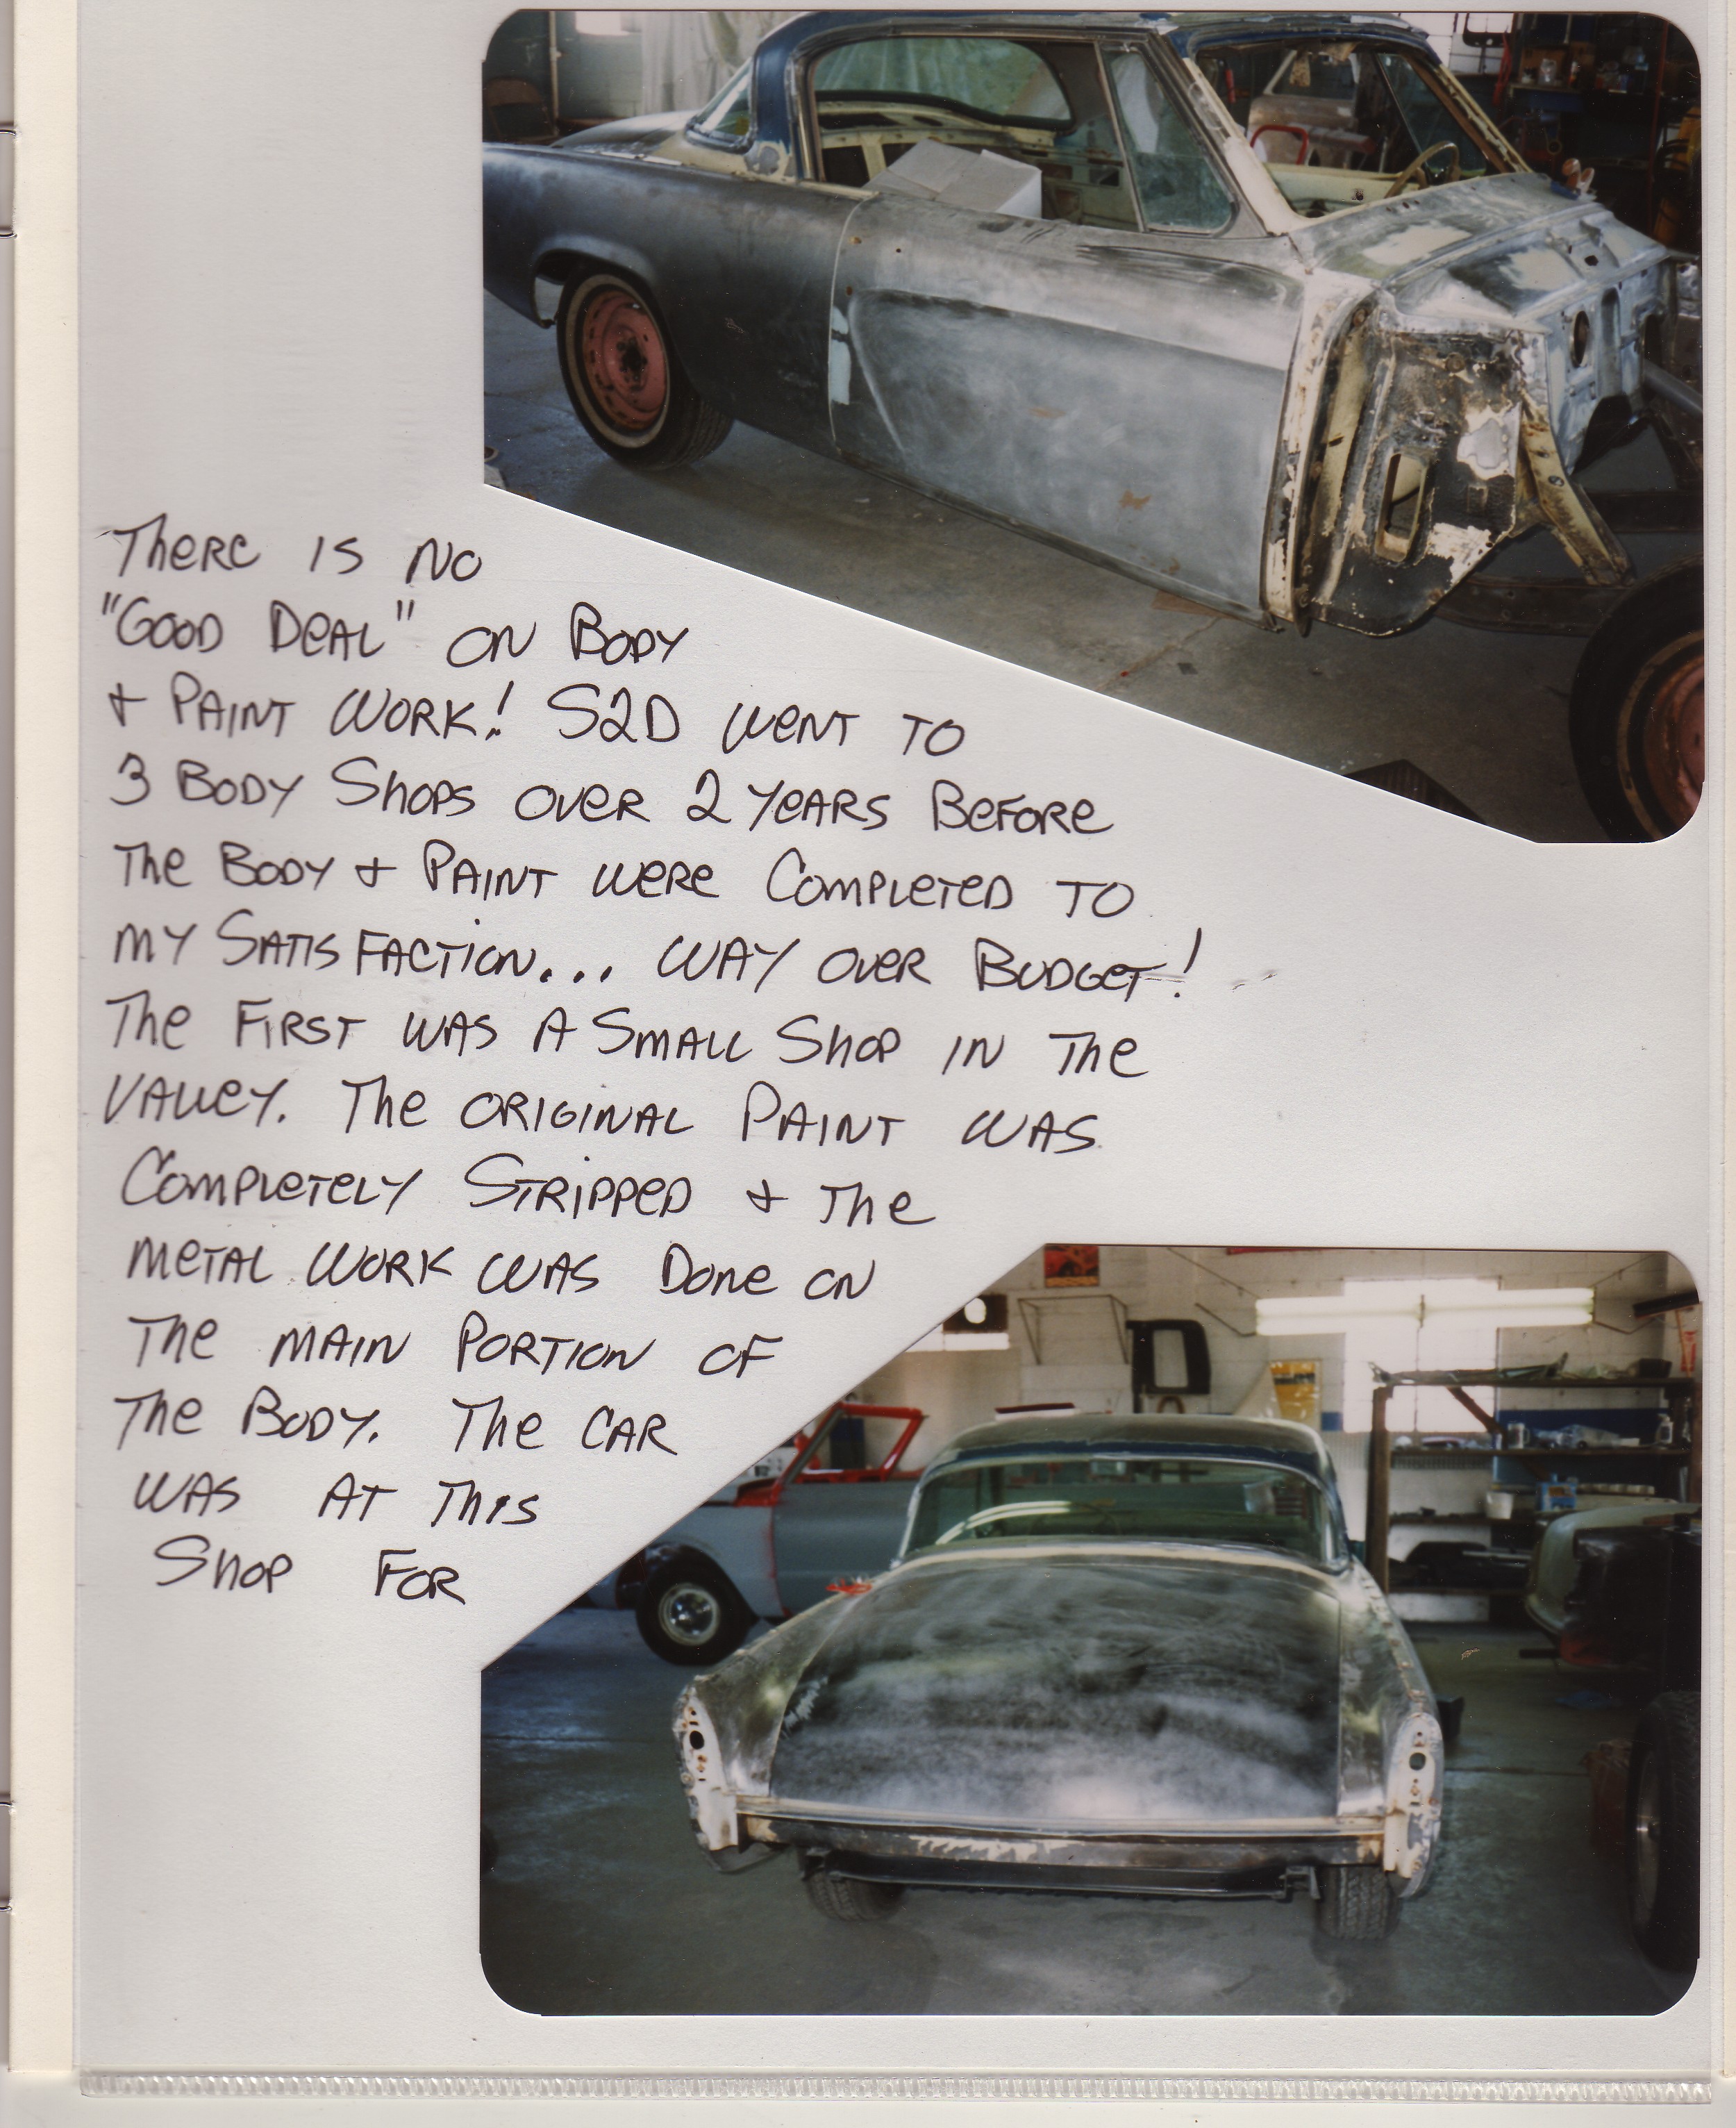 There is no
"Good Deal" on Body
+ Paint Work! S2D went to
3 Body Shops over 2 years Before
The Body + Paint were Completed to
my Satisfaction... way over Budget!
The First was a Small Shop in The
Valley. The original Paint was
Completely Stripped + The
metal work was Done on
The main Portion of
The Body. The car
was at This
Shop For